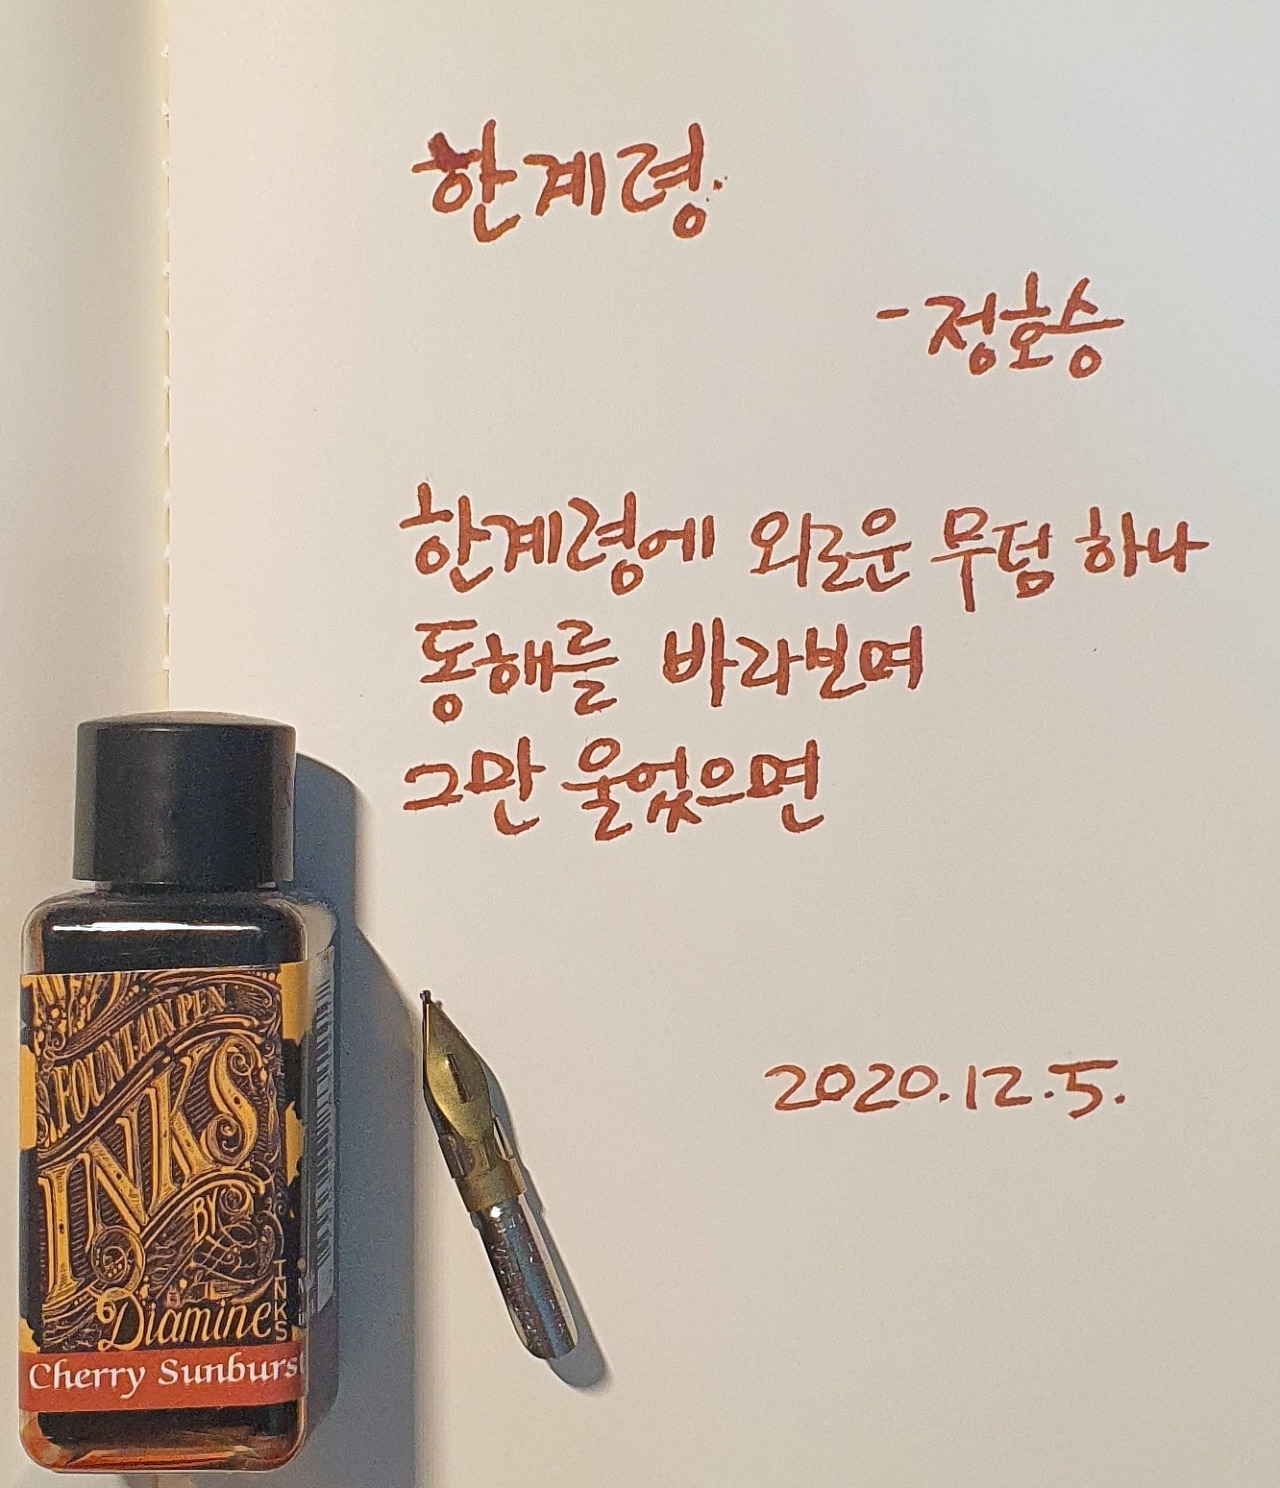 한계령
- 정호승
한계령에 외로운 무덤 하나
동해를 바라보며
그만 울었으면
2020.12.5.
FOUNTAIN PEN
INKS
BY
Diamine
INKS
Cherry Sunburst